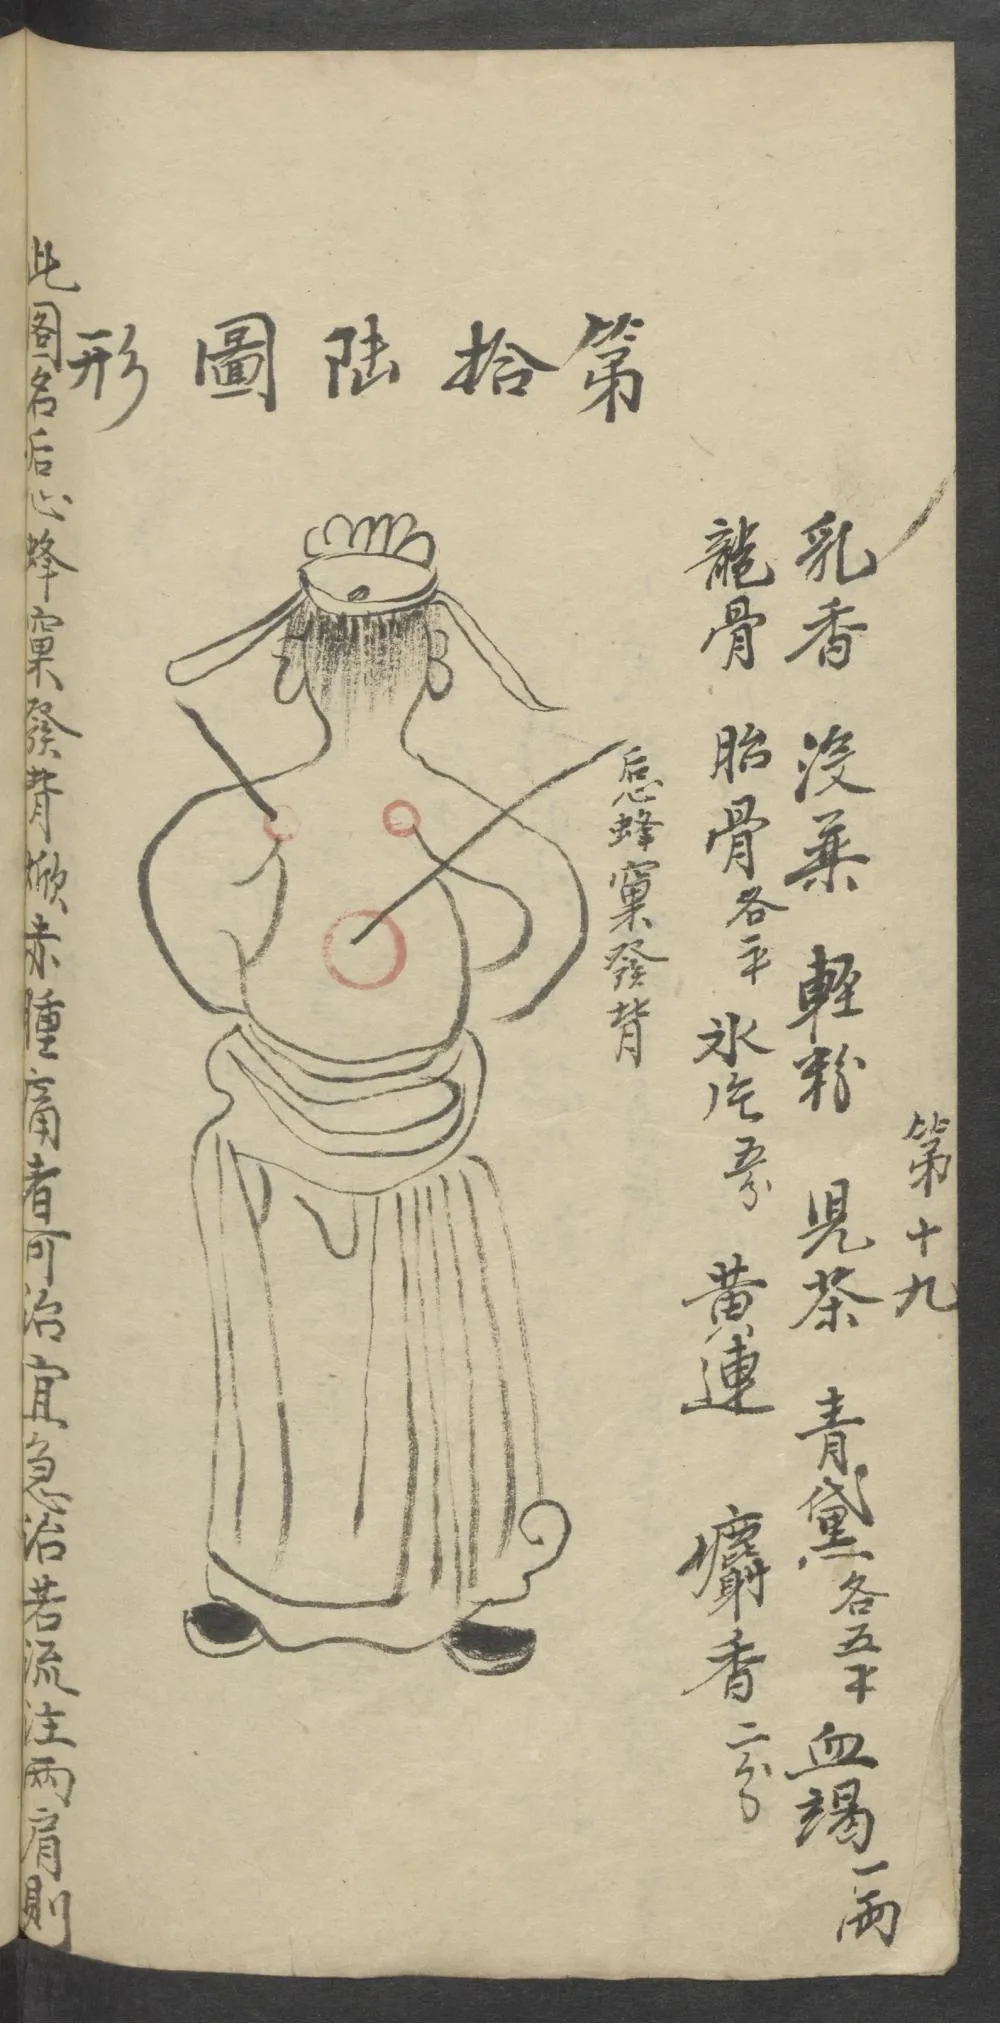 第十九
乳香 沒藥 輕粉 児茶 青黛各五千 血竭一兩
龍骨 胎骨各一千 氷片五分 黄連 麝香二分
第拾陆圖形
后心蜂窠發背
此图名后心蜂窠發背焮赤腫痛者可治宜急治若流注兩肩則